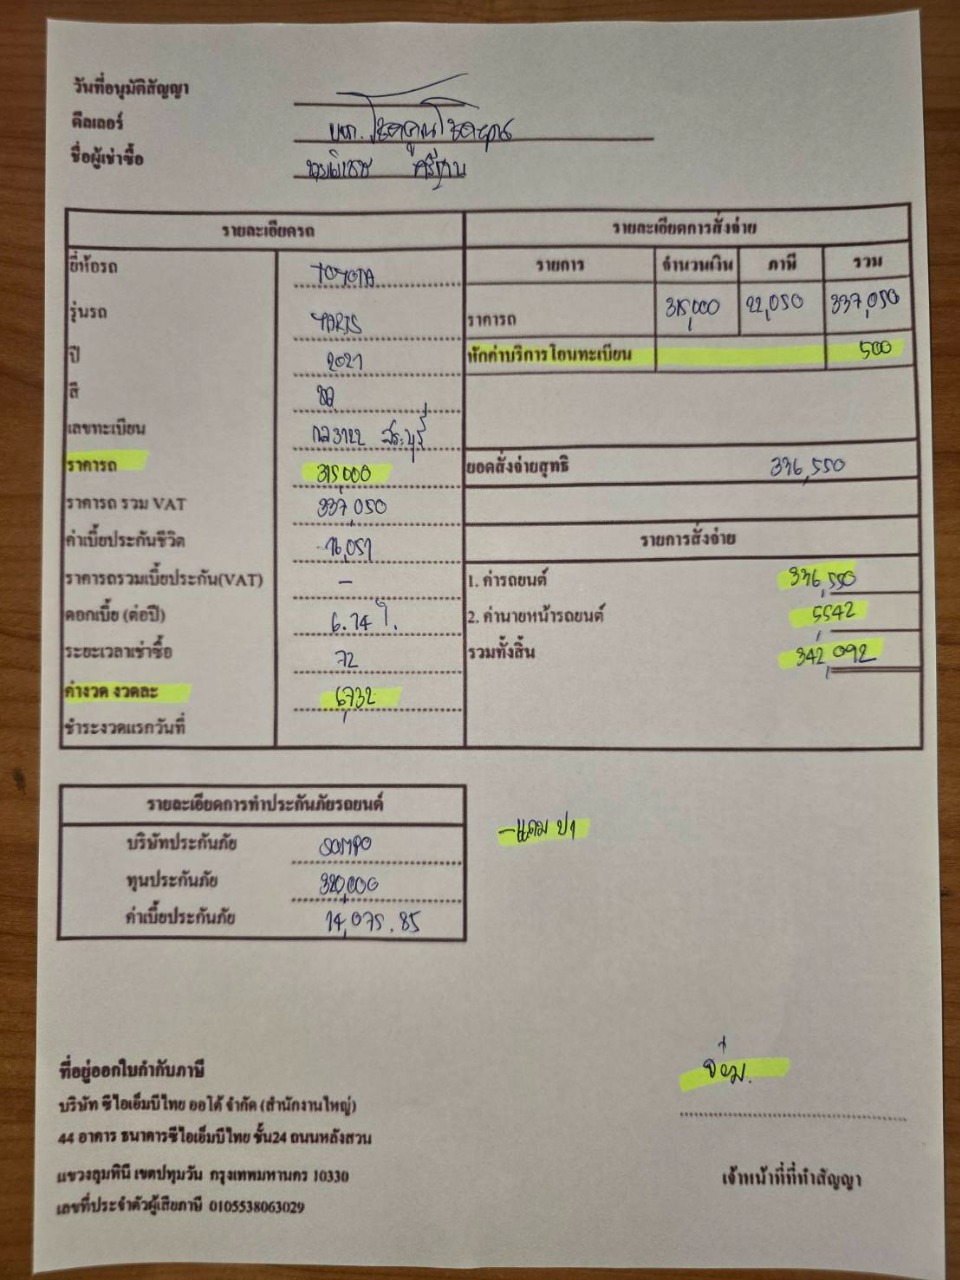 วันที่อนุมัติสัญญา
ดีลเลอร์ บจก. โชคคูณโชค
ชื่อผู้เช่าซื้อ
รายละเอียดรถ
ยี่ห้อรถ TOYOTA
รุ่นรถ YARIS
ปี 2021
สี
เลขทะเบียน สระบุรี
ราคารถ 315,000
ราคารถ รวม VAT 337,050
ค่าเบี้ยประกันชีวิต 16,051
ราคารถรวมเบี้ยประกัน(VAT) -
ดอกเบี้ย (ต่อปี) 6.74 %
ระยะเวลาเช่าซื้อ 72
ค่างวด งวดละ 6,732
ชำระงวดแรกวันที่
รายละเอียดการสั่งจ่าย
รายการ จำนวนเงิน ภาษี รวม
ราคารถ 315,000 22,050 337,050
หักค่าบริการโอนทะเบียน 500
ยอดสั่งจ่ายสุทธิ 336,550
รายการสั่งจ่าย
1. ค่ารถยนต์ 336,550
2. ค่านายหน้ารถยนต์ 5,542
รวมทั้งสิ้น 342,092
รายละเอียดการทำประกันภัยรถยนต์
บริษัทประกันภัย SOMPO
ทุนประกันภัย 320,000
ค่าเบี้ยประกันภัย 14,075.85
- แถม ป1
ที่อยู่ออกใบกำกับภาษี
บริษัท ซีไอเอ็มบีไทย ออโต้ จำกัด (สำนักงานใหญ่)
44 อาคาร ธนาคารซีไอเอ็มบีไทย ชั้น24 ถนนหลังสวน
แขวงลุมพินี เขตปทุมวัน กรุงเทพมหานคร 10330
เลขที่ประจำตัวผู้เสียภาษี 0105538063029
เจ้าหน้าที่ที่ทำสัญญา